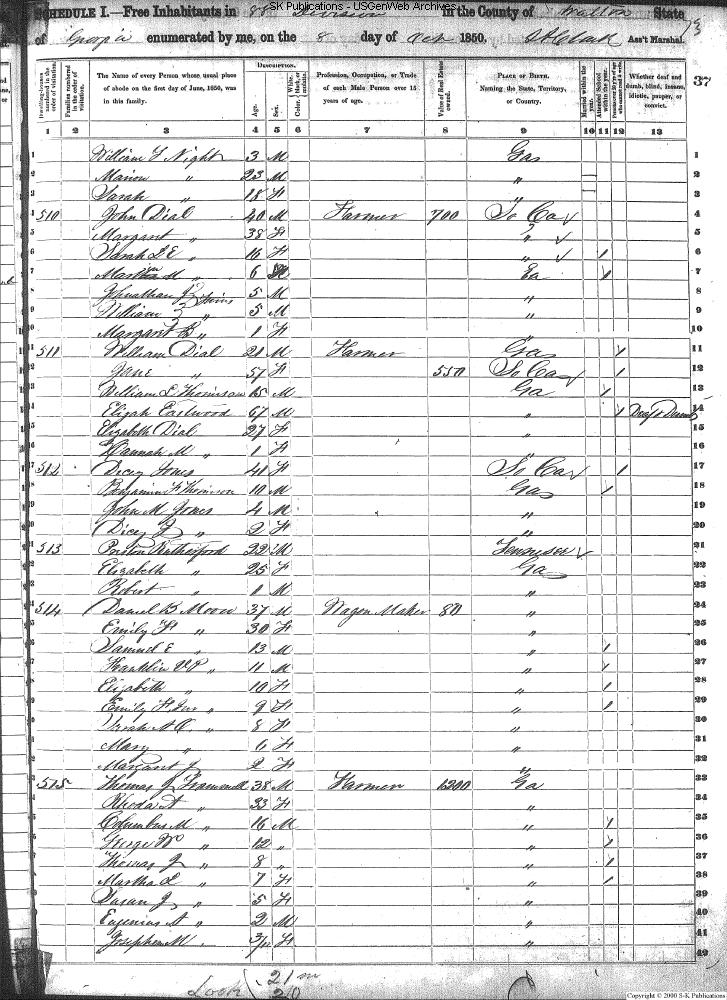 SK Publications - USGenWeb Archives
SCHEDULE I.—Free Inhabitants in 88 Division in the County of Walton State
of Georgia enumerated by me, on the 8 day of Oct 1850. Ass't Marshal.
37
Dwelling-houses numbered in the order of visitation.
Families numbered in the order of visitation.
The Name of every Person whose usual place of abode on the first day of June, 1850, was in this family.
DESCRIPTION.
Age.
Sex.
Color, White, black, or mulatto.
Profession, Occupation, or Trade of each Male Person over 15 years of age.
Value of Real Estate owned.
PLACE OF BIRTH. Naming the State, Territory, or Country.
Married within the year.
Attended School within the year.
Persons over 20 y'rs of age who cannot read & write.
Whether deaf and dumb, blind, insane, idiotic, pauper, or convict.
1 2 3 4 5 6 7 8 9 10 11 12 13
1 William T Night 3 M Ga 1
2 Marion " 23 M " 2
Sarah " 18 F " 3
4 510 John Dial 40 M Farmer 700 So Ca 4
5 Margaret " 38 F " 5
6 Sarah L E " 16 F " / 6
7 Martha M " 6 Ga / 7
8 Johnathan J Twins 5 M " 8
9 William " 5 M " 9
10 Margaret E " 1 F " 10
11 511 William Dial 21 M Farmer Ga / 11
12 Jane " 57 F 550 So Ca / 12
13 William L Thomison 15 M Ga / 13
14 Elijah Eastwood 67 M " / Deaf & Dumb 14
15 Elizabeth Dial 27 F " 15
16 Hannah M " 1 F " 16
17 512 Dicey Jones 41 F So Ca / 17
18 Benjamin F Thomison 10 M Ga / 18
19 John M Jones 4 M " 19
20 Dicey J " 2 F " 20
21 513 Preston Rutherford 22 M Tennessee 21
22 Elizabeth " 25 F Ga 22
23 Robert " 1 M " 23
24 514 Daniel B Moore 37 M Wagon Maker 80 " 24
25 Emily F " 30 F " 25
26 Samuel E " 13 M " / 26
27 Franklin V P " 11 M " / 27
28 Elizabeth " 10 F " / 28
29 Emily F Jur " 9 F " / 29
30 8 F " 30
31 Mary " 6 F " 31
32 Margaret J " 2 F " 32
33 515 Thomas J 38 M Farmer 1200 Ga 33
34 Rhoda A " 33 F " 34
35 Columbus M " 16 M " / 35
36 George W " 12 " " / 36
37 Thomas J " 8 " " / 37
38 Martha L " 7 F " / 38
39 Susan J " 5 F " 39
40 Eugenius A " 2 M " 40
41 Josephene M " 3/12 F " 41
42
21 m
20
Copyright © 2000 S-K Publications